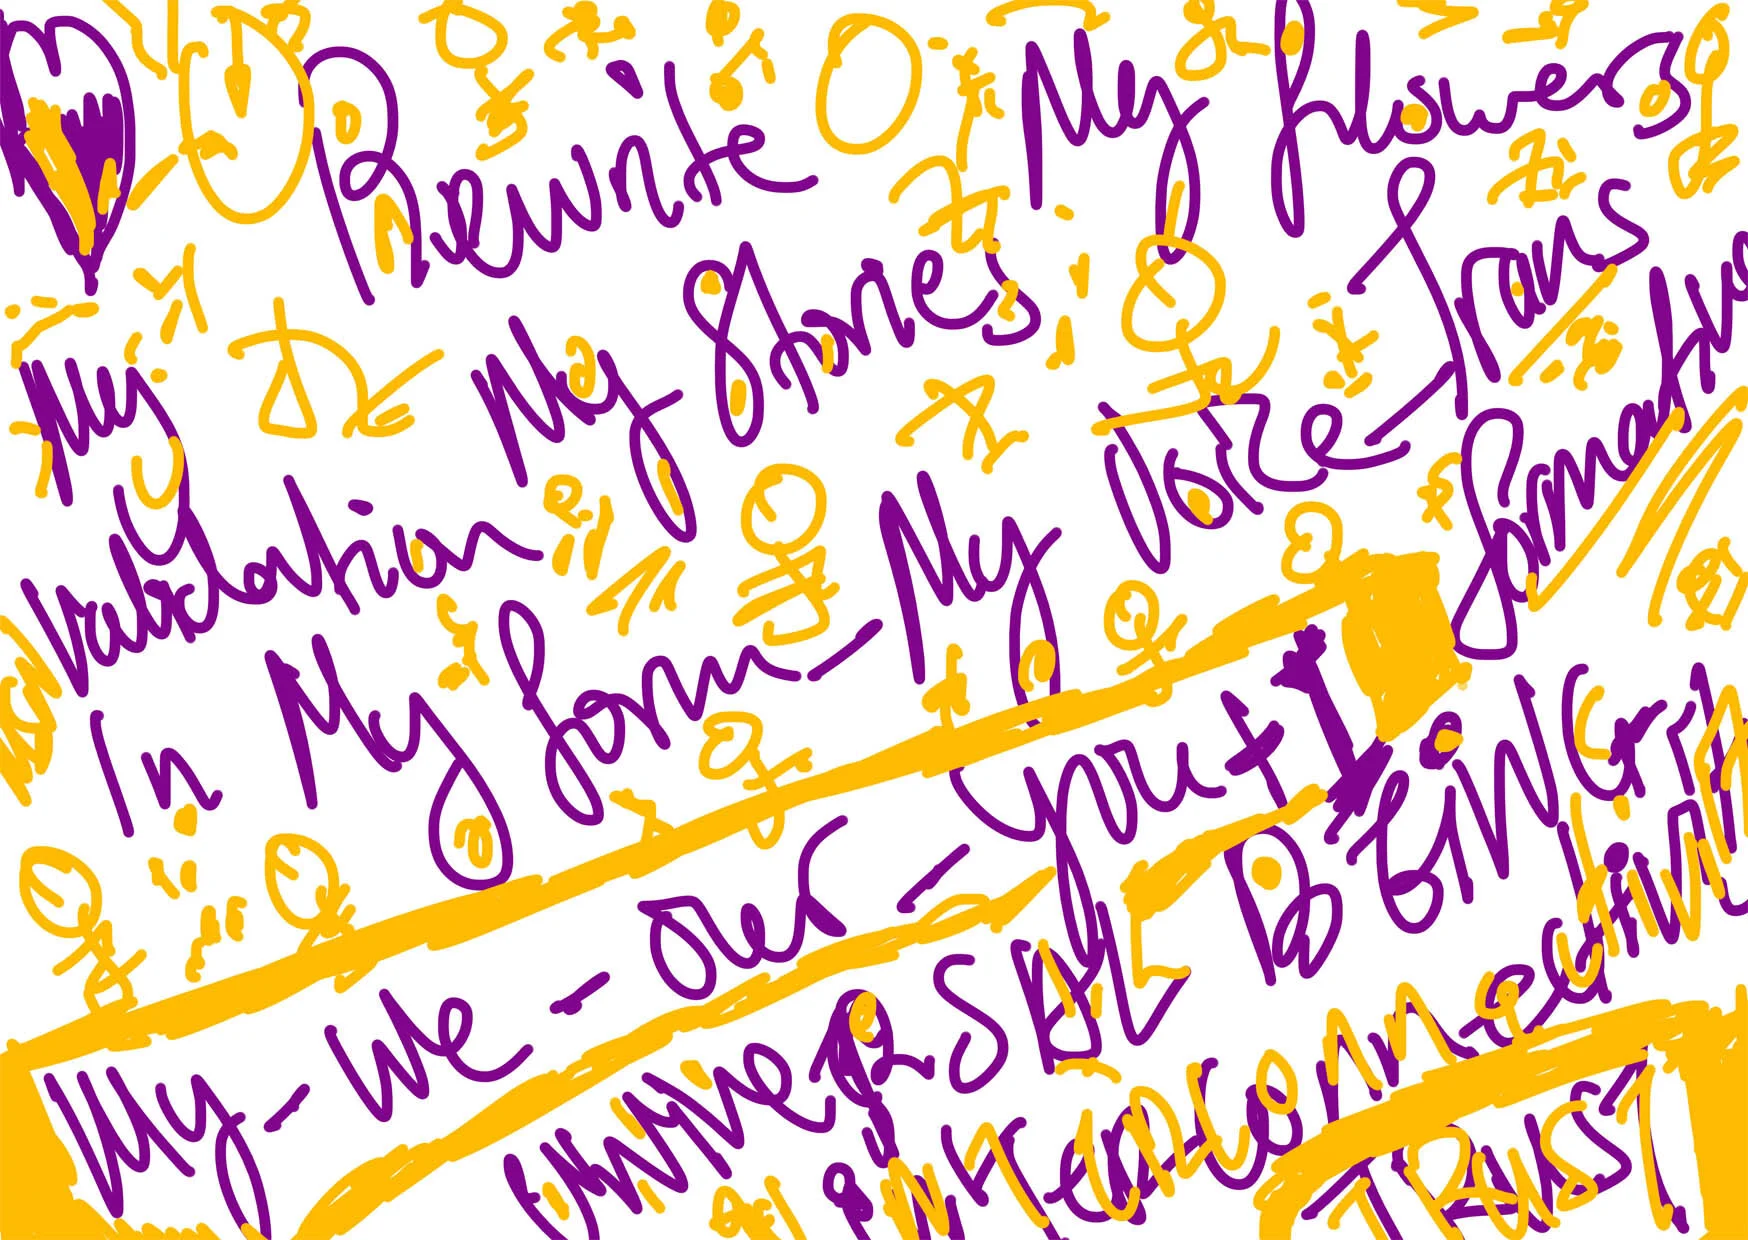 Rewrite My flowers
My Stories Trans
My Validation My Voice - formation
In My form - My
My - We - our - you + I
UNiVeRSAL BEiNG
iNTERCONNeCTiNG
TRUST